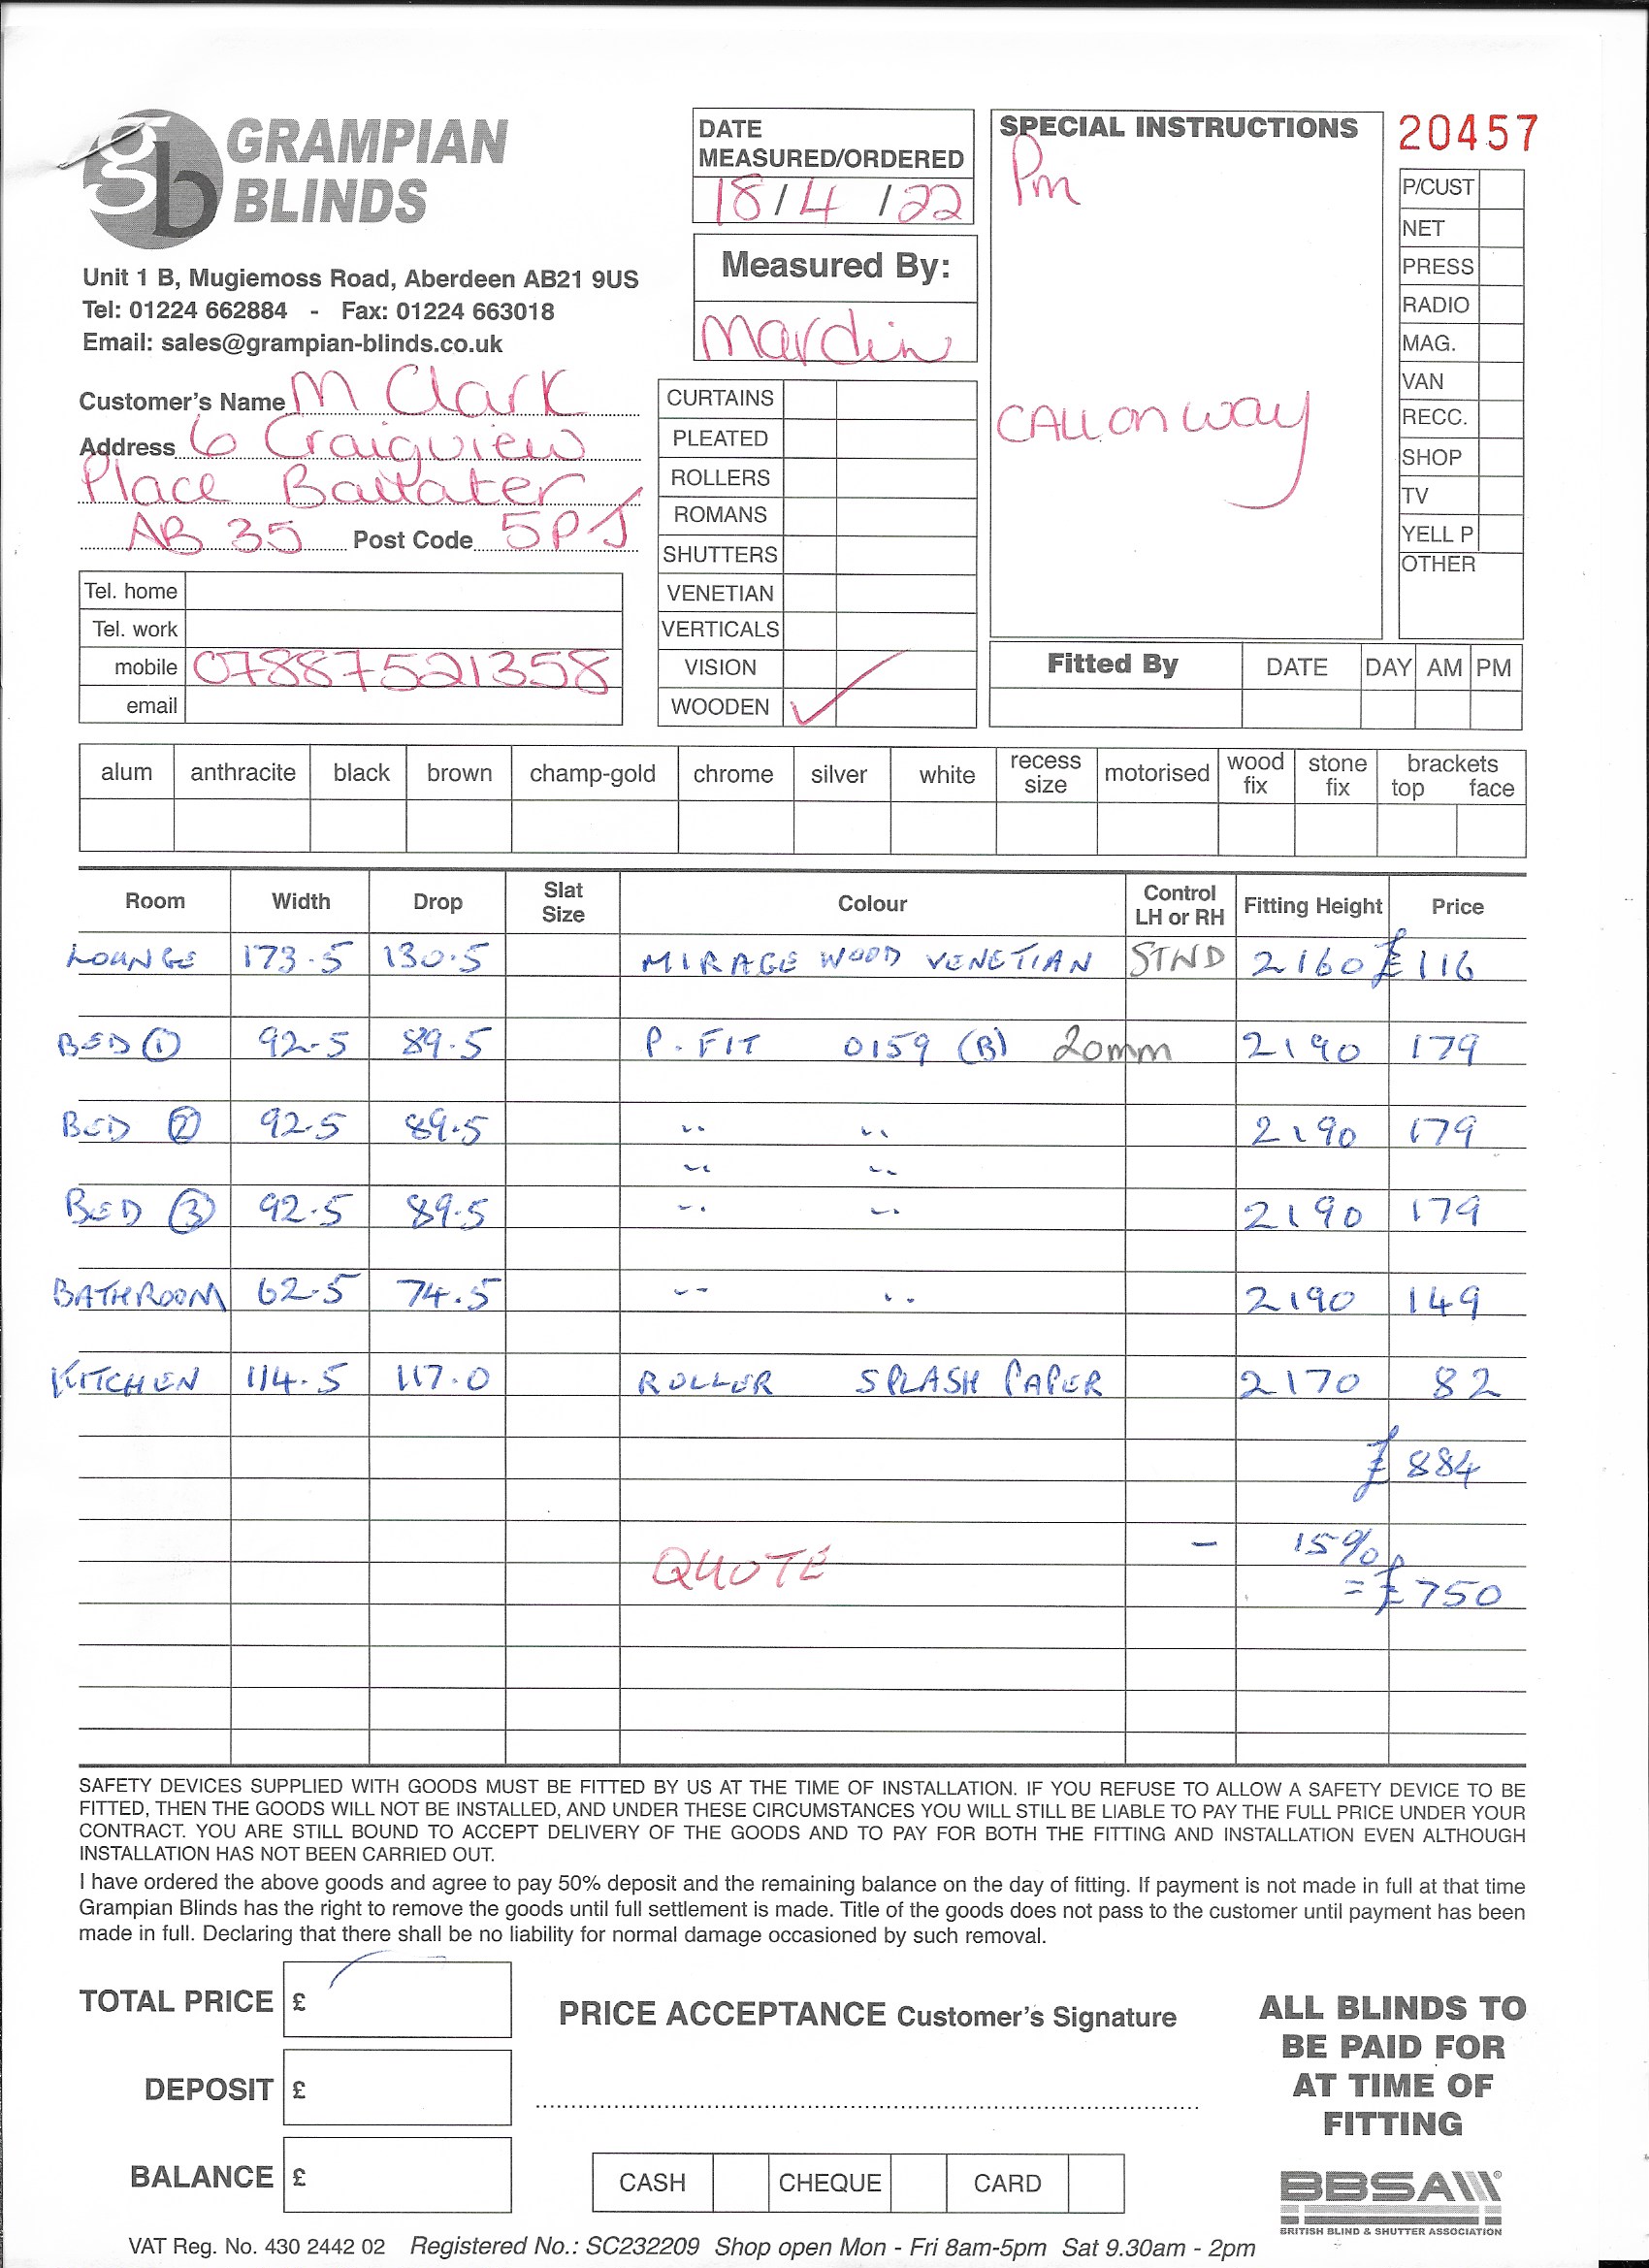 GRAMPIAN
BLINDS
Unit 1 B, Mugiemoss Road, Aberdeen AB21 9US
Tel: 01224 662884 - Fax: 01224 663018
Email: sales@grampian-blinds.co.uk
Customer's Name M Clark
Address 6 Craigview
Place Ballater
AB 35 Post Code 5PJ
Tel. home
Tel. work
mobile 07887521358
email
DATE
MEASURED/ORDERED
18/4/22
Measured By:
Mardin
CURTAINS
PLEATED
ROLLERS
ROMANS
SHUTTERS
VENETIAN
VERTICALS
VISION
WOODEN ✓
SPECIAL INSTRUCTIONS
Pm
CALL on way
20457
P/CUST
NET
PRESS
RADIO
MAG.
VAN
RECC.
SHOP
TV
YELL P
OTHER
Fitted By DATE DAY AM PM
alum anthracite black brown champ-gold chrome silver white recess size motorised wood fix stone fix brackets top face
Room Width Drop Slat Size Colour Control LH or RH Fitting Height Price
LOUNGE 173.5 130.5 MIRAGE WOOD VENETIAN STND 2160 £116
BED ① 92.5 89.5 P.FIT 0159 (B) 20mm 2190 179
BED ② 92.5 89.5 " " 2190 179
" "
BED ③ 92.5 89.5 " " 2190 179
BATHROOM 62.5 74.5 " " 2190 149
KITCHEN 114.5 117.0 ROLLER SPLASH PAPER 2170 82
£884
- 15%
QUOTE
= £750
SAFETY DEVICES SUPPLIED WITH GOODS MUST BE FITTED BY US AT THE TIME OF INSTALLATION. IF YOU REFUSE TO ALLOW A SAFETY DEVICE TO BE
FITTED, THEN THE GOODS WILL NOT BE INSTALLED, AND UNDER THESE CIRCUMSTANCES YOU WILL STILL BE LIABLE TO PAY THE FULL PRICE UNDER YOUR
CONTRACT. YOU ARE STILL BOUND TO ACCEPT DELIVERY OF THE GOODS AND TO PAY FOR BOTH THE FITTING AND INSTALLATION EVEN ALTHOUGH
INSTALLATION HAS NOT BEEN CARRIED OUT.
I have ordered the above goods and agree to pay 50% deposit and the remaining balance on the day of fitting. If payment is not made in full at that time
Grampian Blinds has the right to remove the goods until full settlement is made. Title of the goods does not pass to the customer until payment has been
made in full. Declaring that there shall be no liability for normal damage occasioned by such removal.
TOTAL PRICE £
DEPOSIT £
BALANCE £
PRICE ACCEPTANCE Customer's Signature
CASH CHEQUE CARD
ALL BLINDS TO
BE PAID FOR
AT TIME OF
FITTING
BBSA
BRITISH BLIND & SHUTTER ASSOCIATION
VAT Reg. No. 430 2442 02 Registered No.: SC232209 Shop open Mon - Fri 8am-5pm Sat 9.30am - 2pm